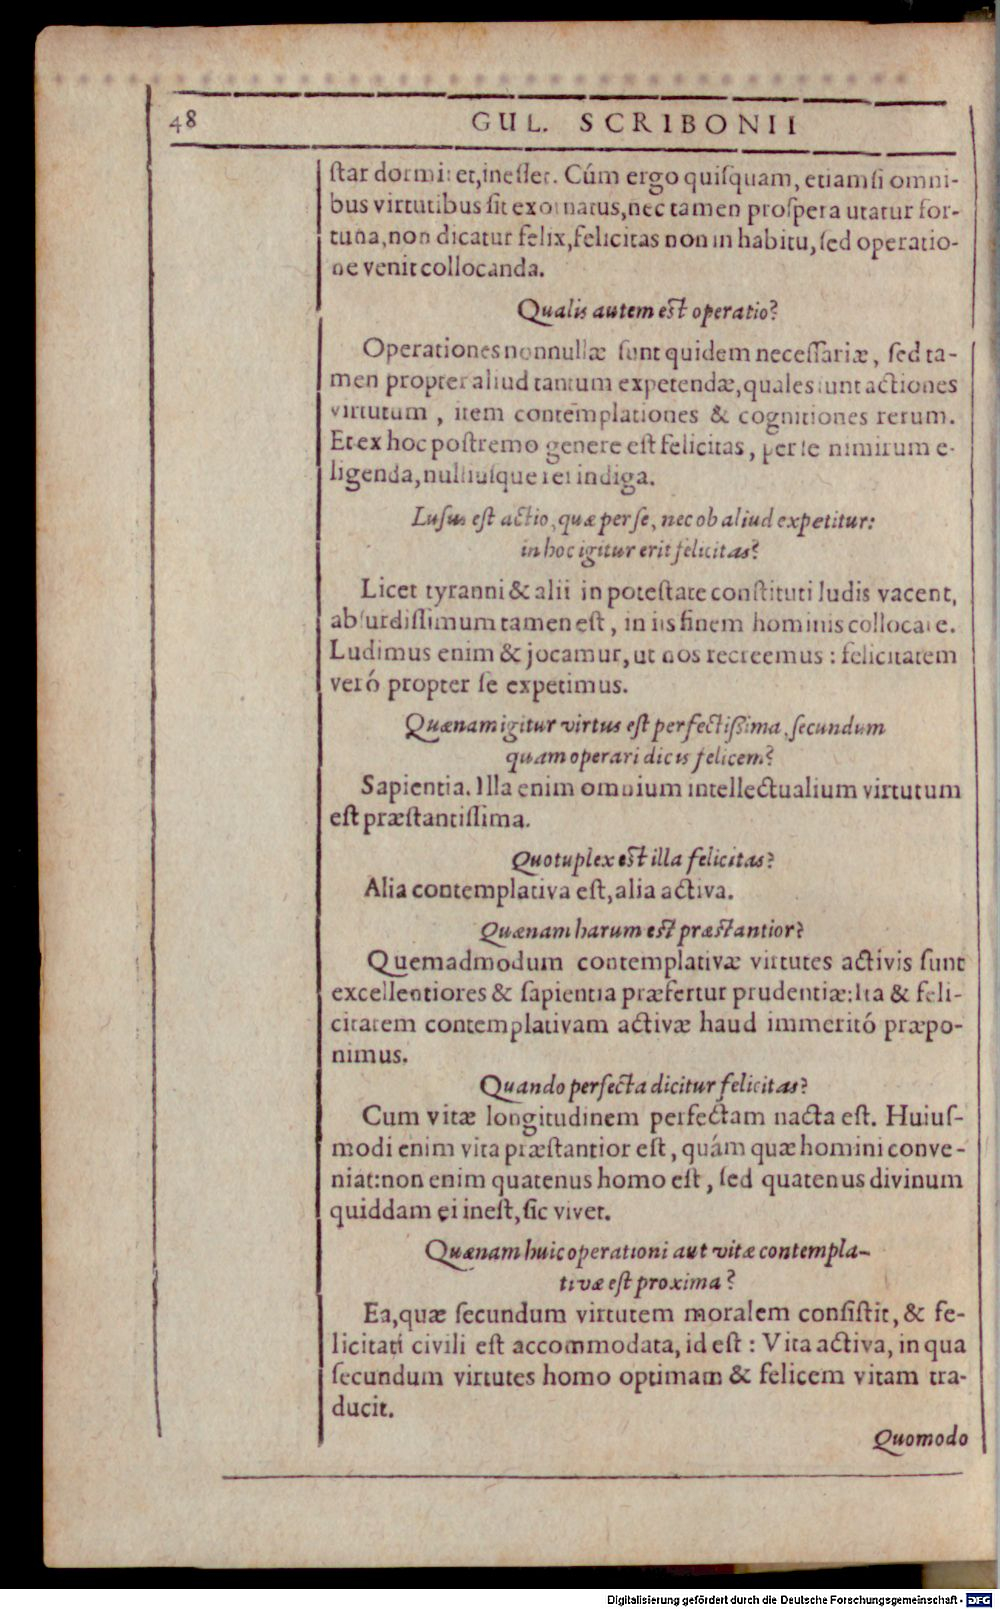 48 GUL. SCRIBONII
ſtar dormiret, ineſſet. Cúm ergo quiſquam, etiamſi omni-
bus virtutibus ſit exornatus, nec tamen proſpera utatur for-
tuna, non dicatur felix, felicitas non in habitu, ſed operatio-
ne venit collocanda.
Qualis autem eſt operatio?
Operationes nonnullæ ſunt quidem neceſſariæ, ſed ta-
men propter aliud tantum expetendæ, quales ſunt actiones
virtutum, item contēmplationes & cognitiones rerum.
Et ex hoc poſtremo genere eſt felicitas, per ſe nimirum e-
ligenda, nulliuſque rei indiga.
Luſus eſt actio, quæ per ſe, nec ob aliud expetitur:
in hoc igitur erit felicitas?
Licet tyranni & alii in poteſtate conſtituti ludis vacent,
abſurdiſſimum tamen eſt, in iis finem hominis collocare.
Ludimus enim & jocamur, ut nos recreemus: felicitatem
veró propter ſe expetimus.
Quænam igitur virtus eſt perfectiſſima, ſecundum
quam operari dicis felicem?
Sapientia. Illa enim omnium intellectualium virtutum
eſt præſtantiſſima.
Quotuplex eſt illa felicitas?
Alia contemplativa eſt, alia activa.
Quænam harum eſt præſtantior?
Quemadmodum contemplativæ virtutes activis ſunt
excellentiores & ſapientia præfertur prudentiæ: Ita & feli-
citatem contemplativam activæ haud immeritó præpo-
nimus.
Quando perfecta dicitur felicitas?
Cum vitæ longitudinem perfectam nacta eſt. Huiuſ-
modi enim vita præſtantior eſt, quám quæ homini conve-
niat: non enim quatenus homo eſt, ſed quatenus divinum
quiddam ei ineſt, ſic vivet.
Quænam huic operationi aut vitæ contempla-
tivæ eſt proxima?
Ea, quæ ſecundum virtutem moralem conſiſtit, & fe-
licitati civili eſt accommodata, id eſt: Vita activa, in qua
ſecundum virtutes homo optimam & felicem vitam tra-
ducit.
Quomodo
Digitalisierung gefördert durch die Deutsche Forschungsgemeinschaft - DFG